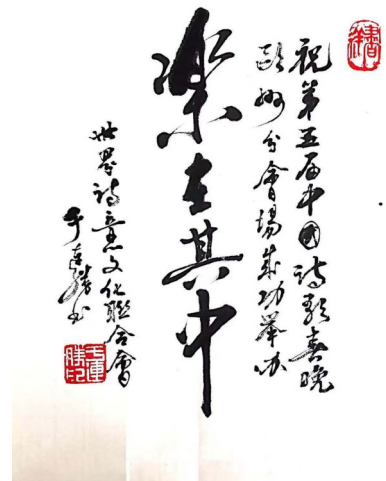 祝第五届中國詩歌春晚
欧洲分會場成功举办
樂在其中
世界詩意文化聯合會